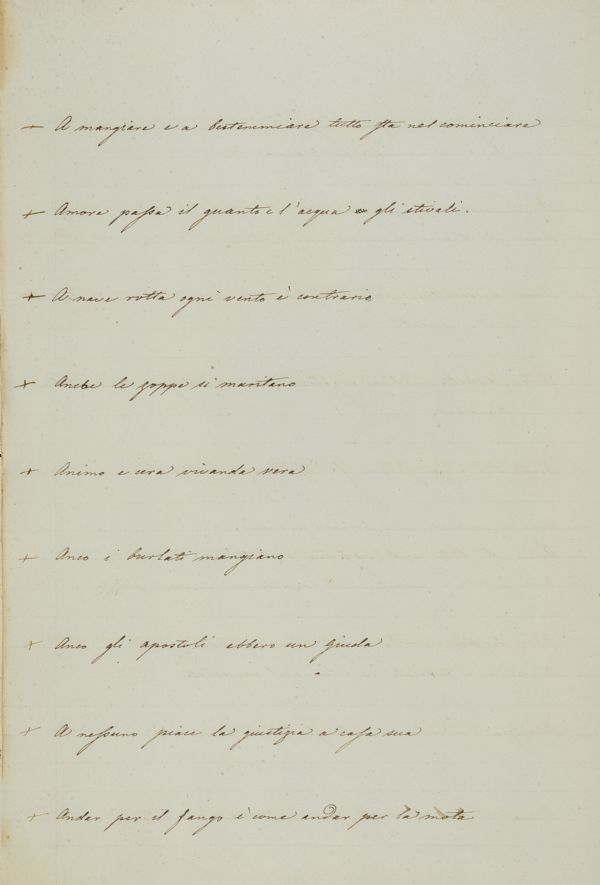 + A mangiare e a bestemmiare tutto sta nel cominciare
+ Amore passa il guanto e l'acqua gli stivali.
+ A nave rotta ogni vento è contrario
+ Anche le zoppe si maritano
+ Animo e cera vivanda vera
+ Anco i burlati mangiano
+ Anco gli apostoli ebbero un Giuda
+ A nessuno piace la giustizia a casa sua
+ Andar per il fango è come andar per la mota